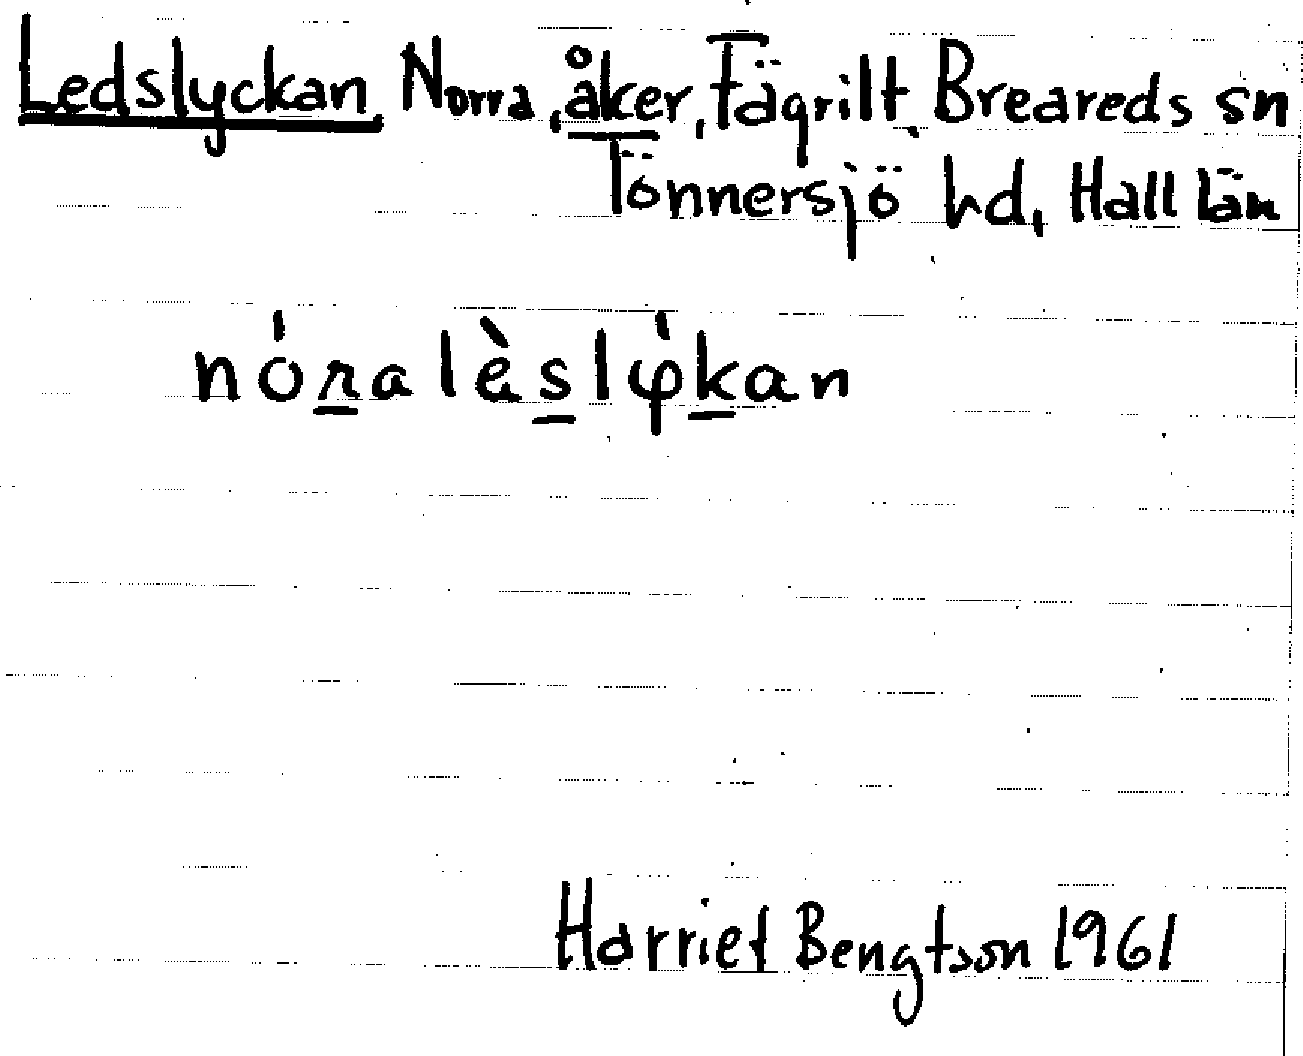 Ledslyckan, Norra, åker, Fägrilt, Breareds sn
Tönnersjö hd, Hall län
nóra lèslykan
Harriet Bengtson 1961